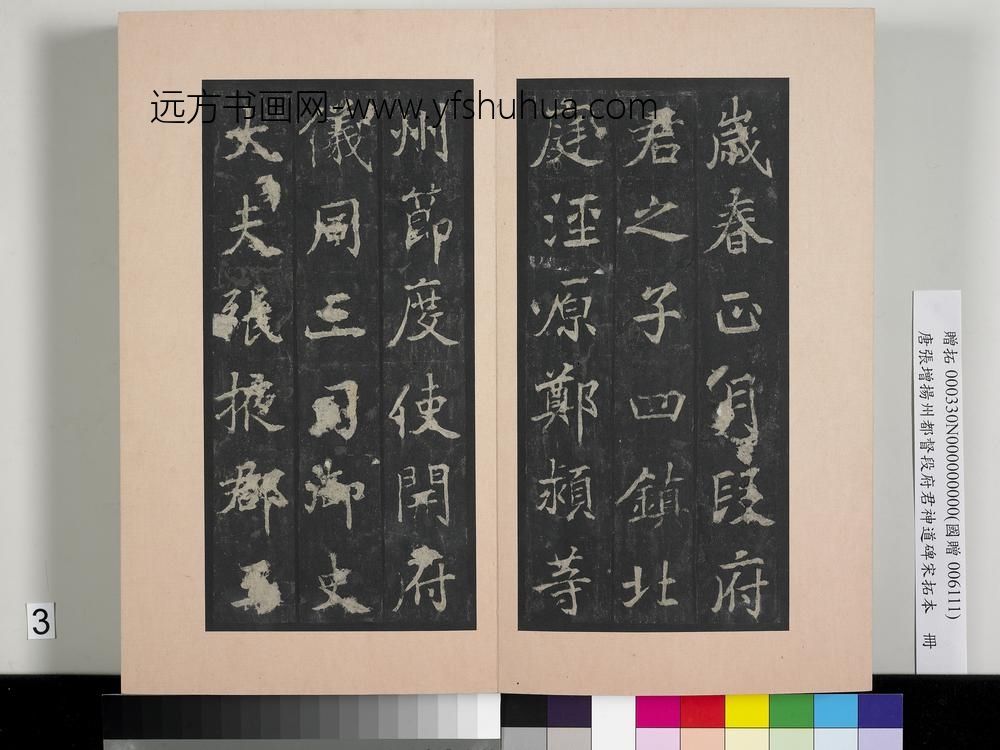 歲春正月段府
君之子四鎮北
庭涇原鄭潁等
州節度使開府
儀同三司御史
大夫張掖郡王
远方书画网-www.yfshuhua.com
贈拓 000330N000000000(國贈 006111)
唐張增揚州都督段府君神道碑宋拓本 冊
3